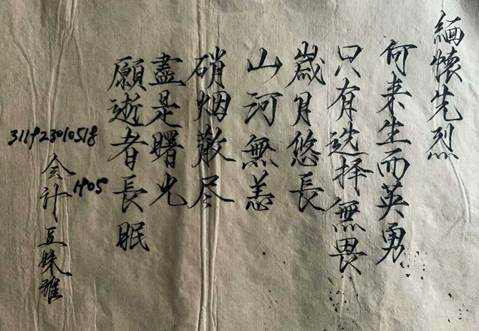 緬懷先烈
何来生而英勇
只有选择無畏
歲月悠長
山河無恙
硝烟散尽
盡是曙光
願逝者長眠
311923010518
会计1905
王姝雅